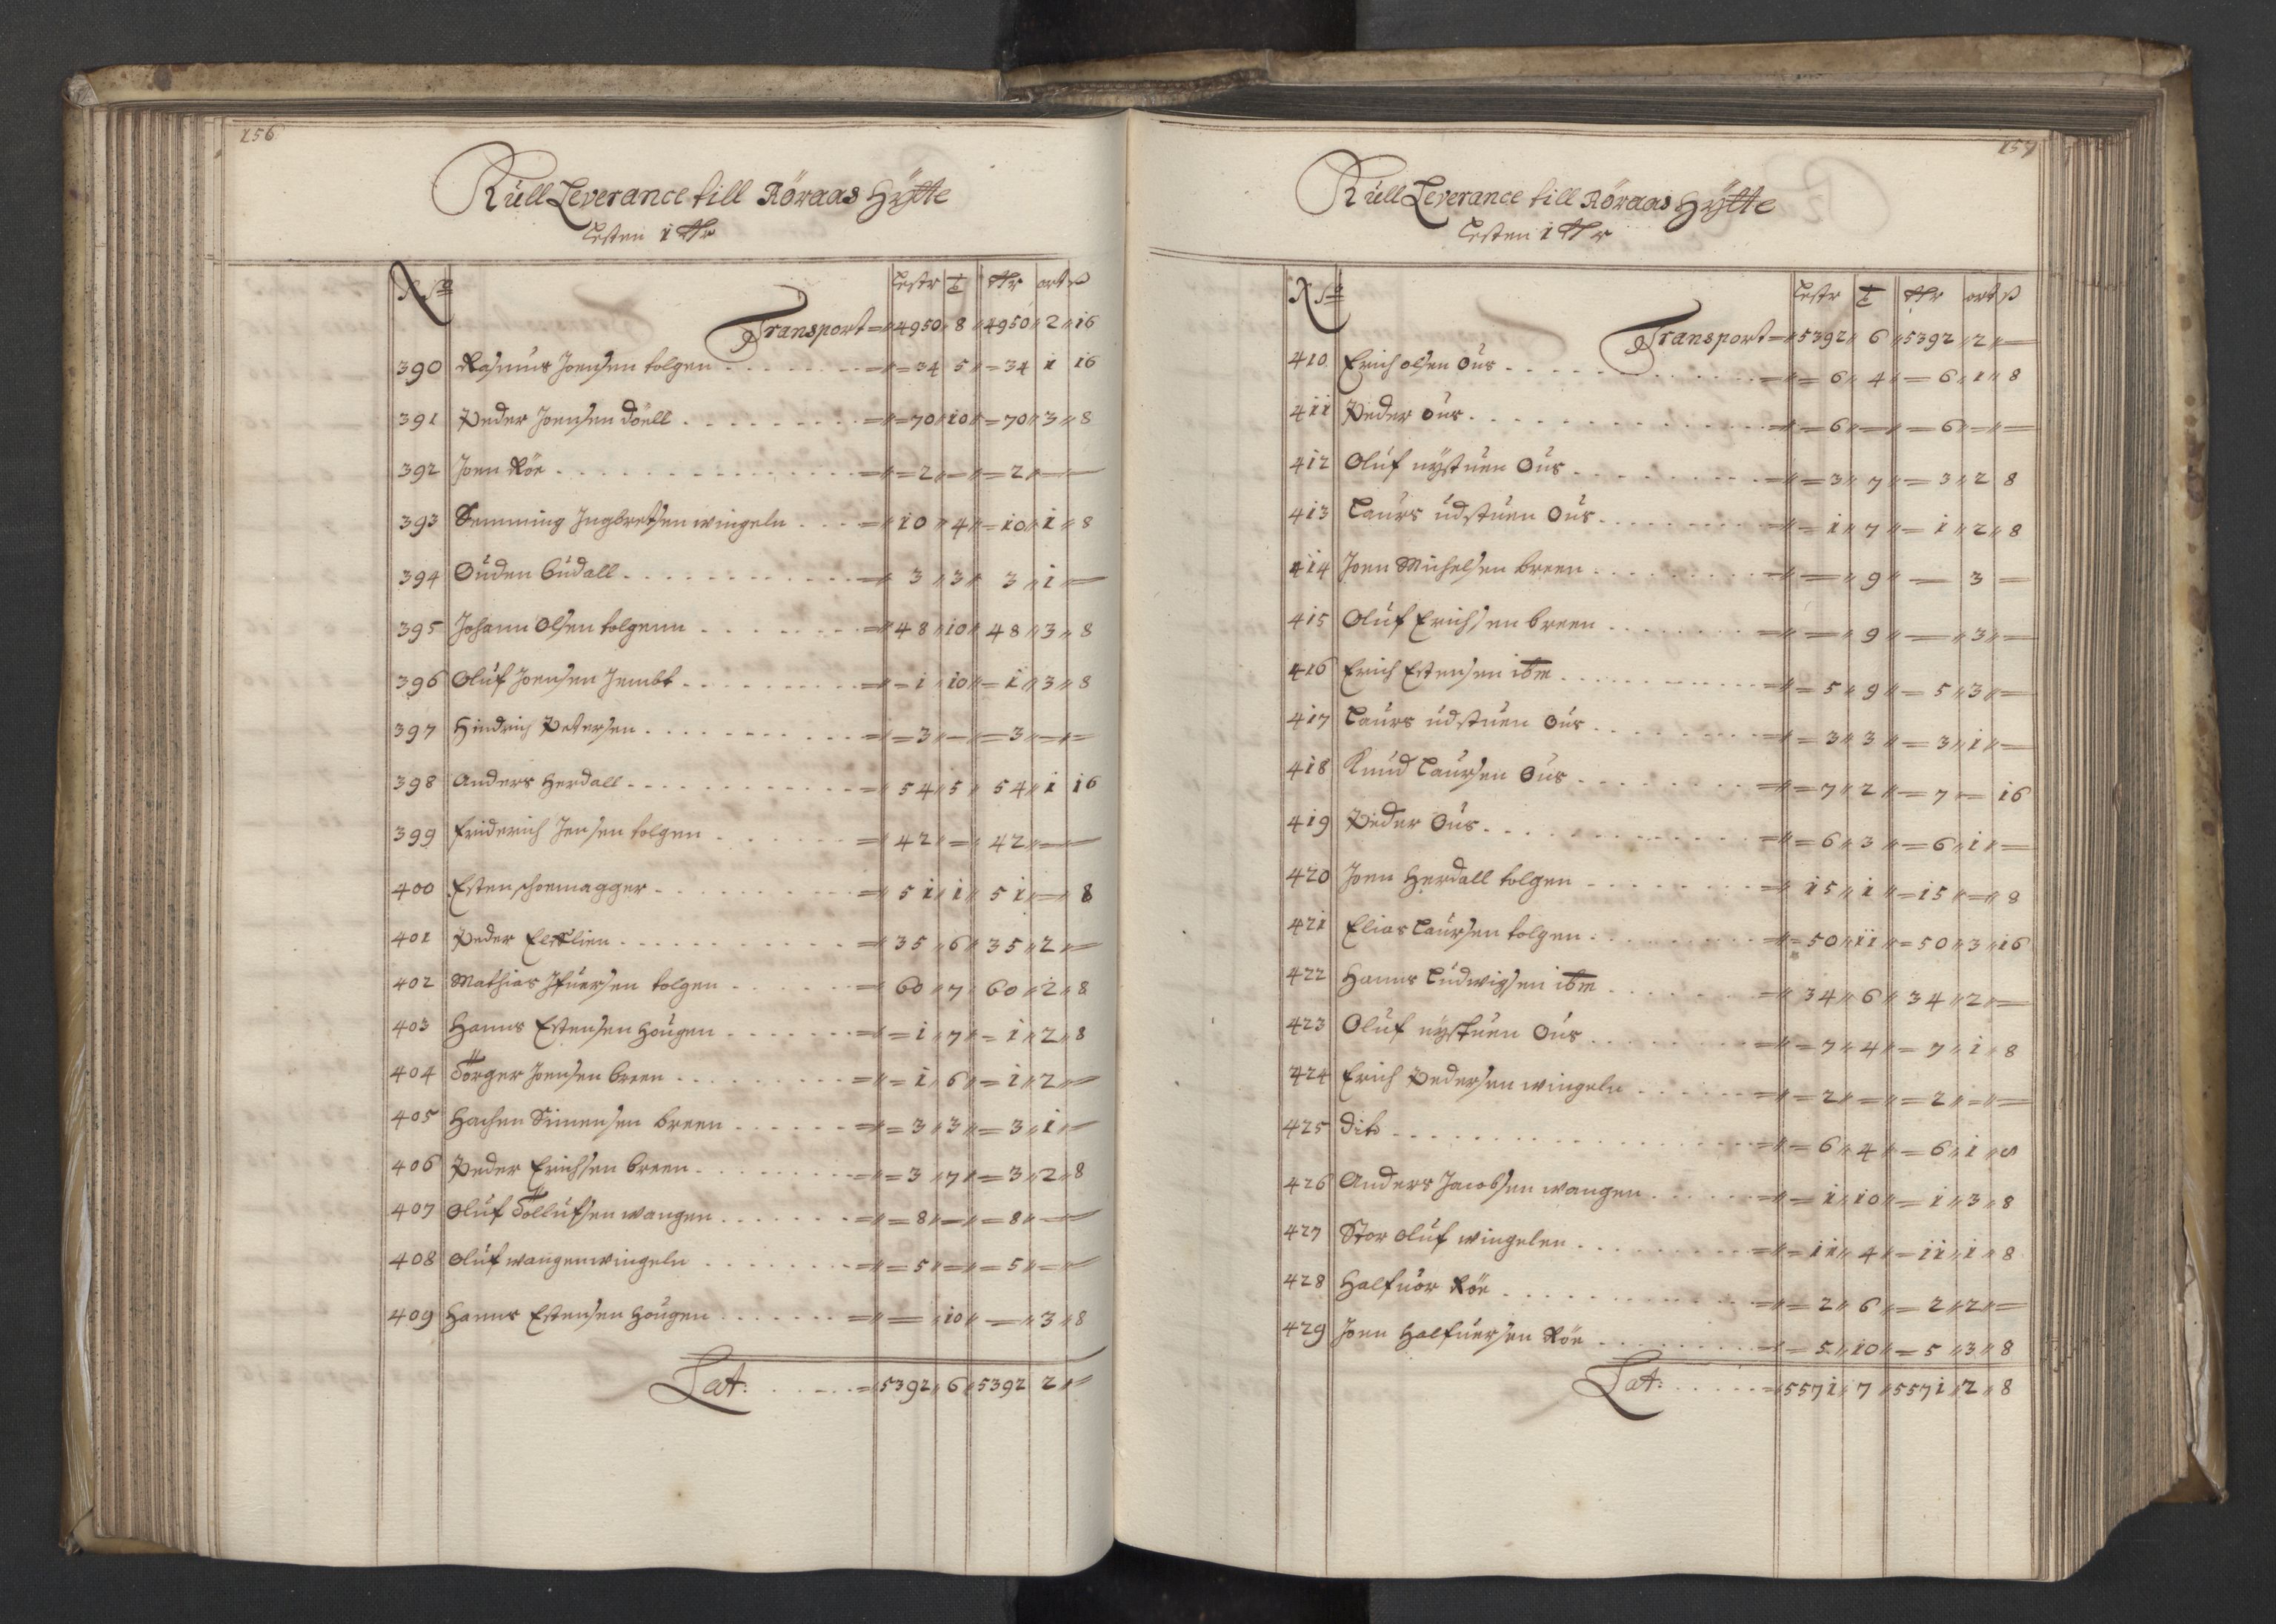 156
Küll Leverance till Röraas Hÿtte
Lesten 1 Rr
No Lestr t Rr ort ß
Transport 4950 8 4950 2 16
390 Rasmus Joensen tolgen 34 5 34 1 16
391 Peder Joensen döell 70 10 70 3 8
392 Joen Röe 2 — 2 — —
393 Semming Ingbretsen wingeln 10 4 10 1 8
394 Ouden budall 3 3 3 1 —
395 Johann Olsen tolgenn 48 10 48 3 8
396 Oluf Joensen Jembt 1 10 1 3 8
397 Hindrich Petersen 3 — 3 — —
398 Anders Herdall 54 5 54 1 16
399 Friderich Jensen tolgen 42 — 42 — —
400 Esten schoemagger 51 1 51 — 8
401 Peder 35 6 35 2 —
402 Mathias Ifuersen tolgen 60 7 60 2 8
403 Hanns Estensen Hougen 1 7 1 2 8
404 Törger Joensen breen 1 6 1 2 —
405 Hachen Simensen breen 3 3 3 1 —
406 Peder Erichsen breen 3 7 3 2 8
407 Oluf Töllufsen wangen 8 — 8 — —
408 Oluf wangenwingeln 5 — 5 — —
409 Hanns Estensen Hougen — 10 — 3 8
Lat: 5392 6 5392 2 —
157
Küll Leverance till Röraas Hÿtte
Lesten 1 Rr
No Lestr t Rr ort ß
Transport 5392 6 5392 2 —
410 Erich olsen Ous 6 4 6 1 8
411 Peder Ous 6 — 6 — —
412 Oluf nÿstuen Ous 3 7 3 2 8
413 Laurs udstuen Ous 1 7 1 2 8
414 Joen Michelsen breen — 9 — 3 —
415 Oluf Erichsen breen — 9 — 3 —
416 Erich Estensen ibm 5 9 5 3 —
417 Laurs udstuen Ous 3 3 3 1 —
418 Knud Laursen Ous 7 2 7 — 16
419 Peder Ous 6 3 6 1 —
420 Joen Herdall tolgen 15 1 15 — 8
421 Elias Laursen tolgen 50 11 50 3 16
422 Hanns Ludwigsen ibm 34 6 34 2 —
423 Oluf nÿstuen Ous 7 4 7 1 8
424 Erich Pedersen wingeln 2 — 2 — —
425 dito 6 4 6 1 8
426 Anders Jacobsen wangen 1 10 1 3 8
427 Stor Oluf wingelen 11 4 11 1 8
428 Halfuor Röe 2 6 2 2 —
429 Joen Halfuersen Röe 5 10 5 3 8
Lat: 5571 7 5571 2 8